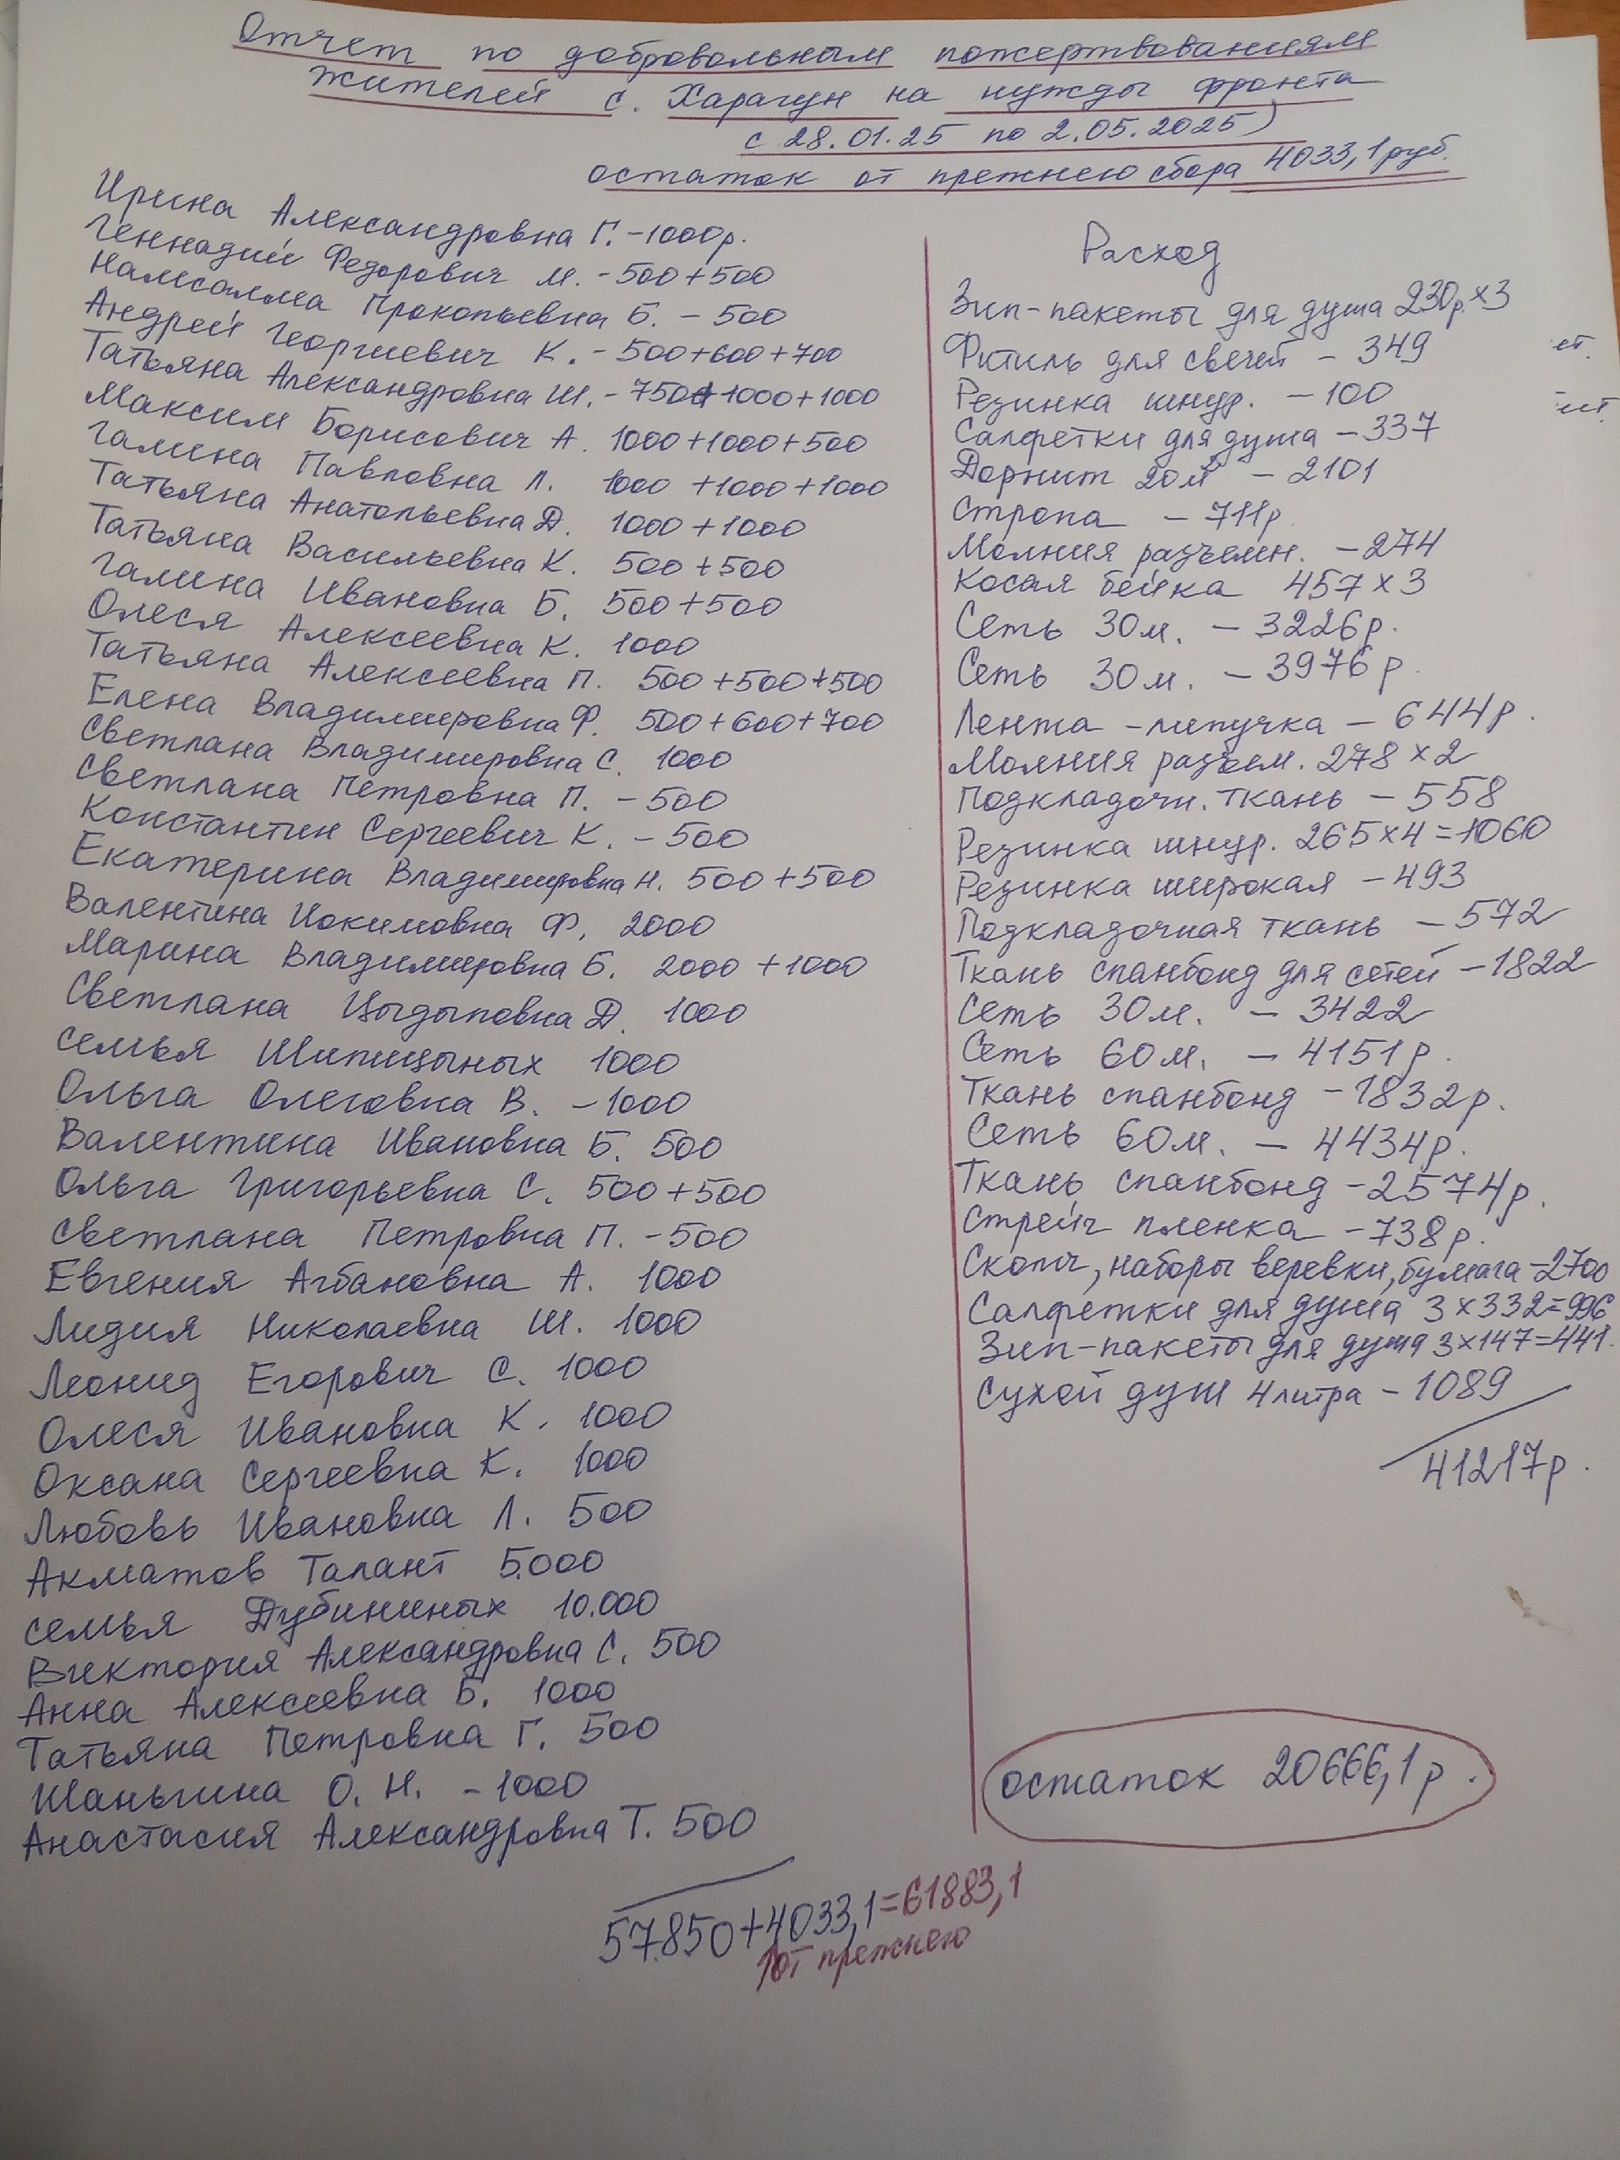 Отчет по добровольным пожертвованиям
жителей с. Харагун на нужды фронта
с 28.01.25 по 2.05.2025)
остаток от прежнего сбора 4033,1 руб.
Ирина Александровна Г. - 1000р.
Геннадий Федорович М. - 500+500
Намсалма Прокопьевна Б. - 500
Андрей Георгиевич К. - 500+600+700
Татьяна Александровна Ш. - 750+1000+1000
Максим Борисович А. 1000+1000+500
Галина Павловна Л. 1000 +1000+1000
Татьяна Анатольевна Д. 1000+1000
Татьяна Васильевна К. 500+500
Галина Ивановна Б. 500+500
Олеся Алексеевна К. 1000
Татьяна Алексеевна П. 500+500+500
Елена Владимировна Ф. 500+600+700
Светлана Владимировна С. 1000
Светлана Петровна П. - 500
Константин Сергеевич К. - 500
Екатерина Владимировна Н. 500+500
Валентина Иокимовна Ф. 2000
Марина Владимировна Б. 2000 +1000
Светлана Цыдыповна Д. 1000
семья Шипицыных 1000
Ольга Олеговна В. - 1000
Валентина Ивановна Б. 500
Ольга Григорьевна С. 500+500
Светлана Петровна П. - 500
Евгения Агбановна А. 1000
Лидия Николаевна Ш. 1000
Леонид Егорович С. 1000
Олеся Ивановна К. 1000
Оксана Сергеевна К. 1000
Любовь Ивановна Л. 500
Акматов Талант 5.000
семья Дубининых 10.000
Виктория Александровна С. 500
Анна Алексеевна Б. 1000
Татьяна Петровна Г. 500
Шаньгина О. Н. - 1000
Анастасия Александровна Т. 500
57.850+4033,1=61883,1
от прежнего
Расход
Зип-пакеты для душа 230р.×3
Фитиль для свечей - 349
Резинка шнур. - 100
Салфетки для душа - 337
Дорнит 20м - 2101
Стропа - 711р
Молния разъемн. - 274
Косая бейка 457×3
Сеть 30м. - 3226р.
Сеть 30м. - 3976р.
Лента-липучка - 644р.
Молния разъем. 278×2
Подкладочн. ткань - 558
Резинка шнур. 265×4=1060
Резинка широкая - 493
Подкладочная ткань - 572
Ткань спанбонд для сетей - 1822
Сеть 30м. - 3422
Сеть 60м. - 4151р.
Ткань спанбонд - 1832р.
Сеть 60м. - 4434р.
Ткань спанбонд - 2574р.
Стрейч пленка - 738р.
Скотч, наборы веревки, бумага - 2700
Салфетки для душа 3×332=996
Зип-пакеты для душа 3×147=441.
Сухой душ 4 литра - 1089
41217р.
остаток 20666,1р.